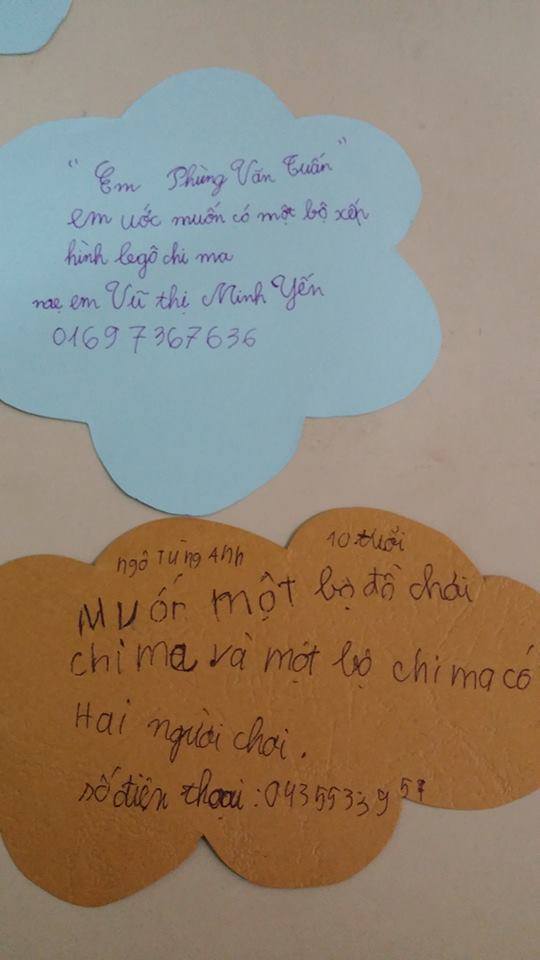 "Em Phùng Văn Tuấn"
em ước muốn có một bộ xếp
hình legô chi ma
mẹ em Vũ thị Minh Yến
01697367636
ngô Tùng Anh 10 tuổi
Muốn một bộ đồ chơi
chi ma và một bộ chi ma có
Hai người chơi.
số điện thoại : 0435533957